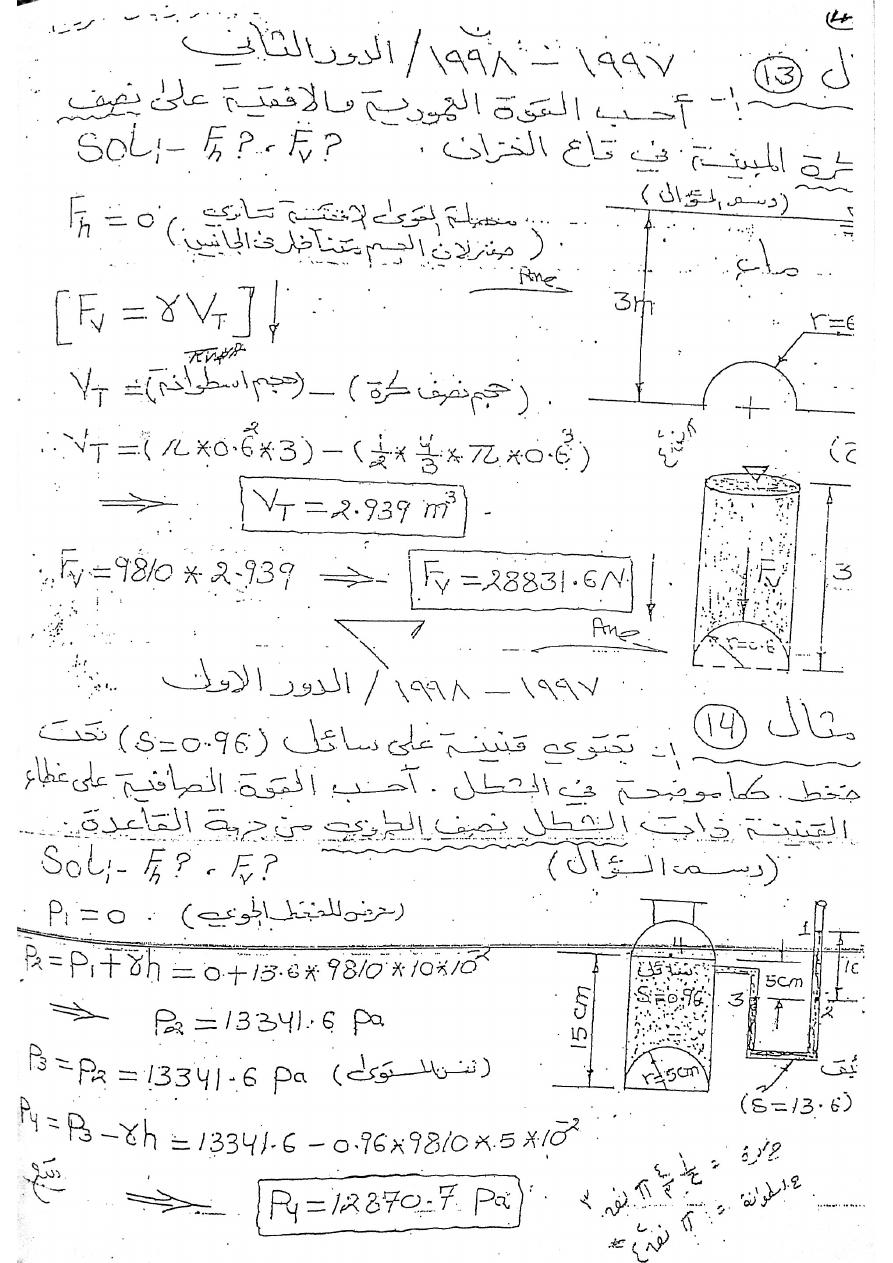 ١٩٩٧ – ١٩٩٨ / الدور الثاني
ل (13) أ- أحسب القوة العمودية والافقية على نصف
كرة المبينة في قاع الخزان.
SOL:- Fh? , Fv?
(رسم السؤال)
Fh = 0 (محصلة القوى الافقية تساوي
صفر لان الجسم متناظر من الجانبين)
Ans
ماء
3m
r=6
[Fv = γVT] ↓
VT = (حجم اسطوانة) – (حجم نصف كرة)
∴ VT = (π*0.6²*3) – (1/2*4/3*π*0.6³)
⇒ VT = 2.939 m³
Fv = 9810 * 2.939 ⇒ Fv = 28831.6 N ↓
Ans
Fv
3
r=0.6
١٩٩٧ – ١٩٩٨ / الدور الاول
مثال (14) أ- تحتوي قنينة على سائل (S=0.96) تحت
ضغط. كما موضحة في الشكل. أحسب القوة الصافية على غطاء
القنينة ذات الشكل نصف الكروي من جهة القاعدة.
SOL:- Fh? , Fv?
(رسم السؤال)
P1 = 0 . (معرض للضغط الجوي)
P2 = P1 + γh = 0 + 13.6*9810*10*10⁻²
⇒ P2 = 13341.6 Pa
P3 = P2 = 13341.6 Pa (نفس المستوى)
P4 = P3 – γh = 13341.6 – 0.96*9810*5*10⁻²
يتبع
⇒ P4 = 12870.7 Pa
4
1
سائل
S=0.96
5cm
3
2
15cm
r=5cm
(S=13.6)
ح كرة = 1/2 4/3 π نق٣
ح اسطوانة = π نق٢ ع